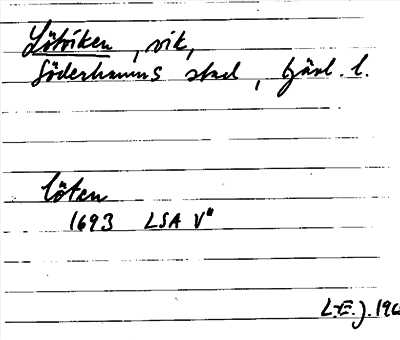 Lötviken, vik,
Söderhamns stad, Gävl. l.
löten
1693 LSA V"
L-E. J. 196